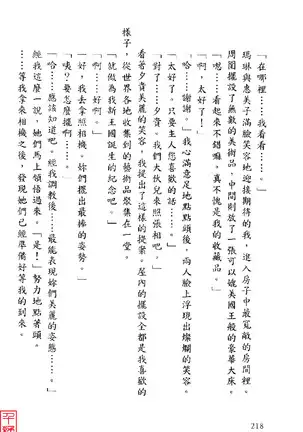 「在哪裡……我看看……。」
瑪琳與惠美子滿臉笑容地迎接期待的我，進入房子中最寬敞的房間裡。
周圍擺設了無數的美術品，中間則放了一張可以媲美國王般的豪華大床。
「嗯……看起來不錯嘛，真不愧是我的收藏品。」
「啊，太好了！」
「哈……謝謝。」我心滿意足地點點頭後，兩人臉上浮現出燦爛的笑容。
「太好了。只要主人您喜歡的話……。」
「對了……夕貴。我們大伙兒來照張相吧。」
看著夕貴美麗的笑容，我提出了這樣的提案。屋內的擺設全都是我喜歡的
樣子，從世界各地收集到的藝術品聚集在一堂。
「就做為我新王國誕生的紀念吧。」
「啊……好啊。」
「好，我去拿照相機。妳們擺出最棒的姿勢。」
「咦？要怎麼擺啊……。」
「哈……應該知道吧。經我調教後……最能表現妳們美麗的姿態……。」
經我這麼一說，她們馬上領悟過來。「是！」努力地點著頭。
……等我拿來相機之後，發現她們已經準備好等我的到來。
218